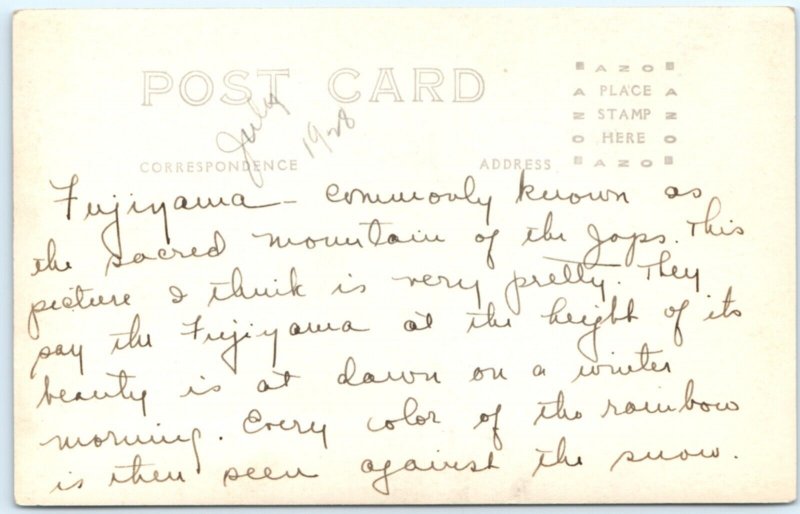 POST CARD
July
1928
AZO
PLACE
STAMP
HERE
AZO
CORRESPONDENCE ADDRESS
Fujiyama - commonly known as
the sacred mountain of the Japs. This
picture I think is very pretty. They
say the Fujiyama at the height of its
beauty is at dawn on a winter
morning. Every color of the rainbow
is then seen against the snow.